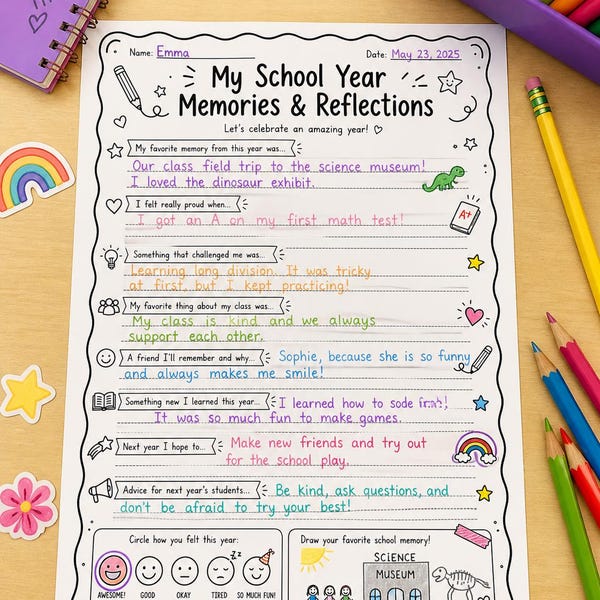 Name: Emma
Date: May 23, 2025
My School Year
Memories & Reflections
Let's celebrate an amazing year!
My favorite memory from this year was...
Our class field trip to the science museum!
I loved the dinosaur exhibit.
I felt really proud when...
I got an A on my first math test!
A+
Something that challenged me was...
Learning long division. It was tricky
at first, but I kept practicing!
My favorite thing about my class was...
My class is kind and we always
support each other.
A friend I'll remember and why...
Sophie, because she is so funny
and always makes me smile!
Something new I learned this year...
I learned how to sode
It was so much fun to make games.
Next year I hope to...
Make new friends and try out
for the school play.
Advice for next year's students...
Be kind, ask questions, and
don't be afraid to try your best!
Circle how you felt this year:
AWESOME!
GOOD
OKAY
TIRED
SO MUCH FUN!
zz
Draw your favorite school memory!
SCIENCE
MUSEUM